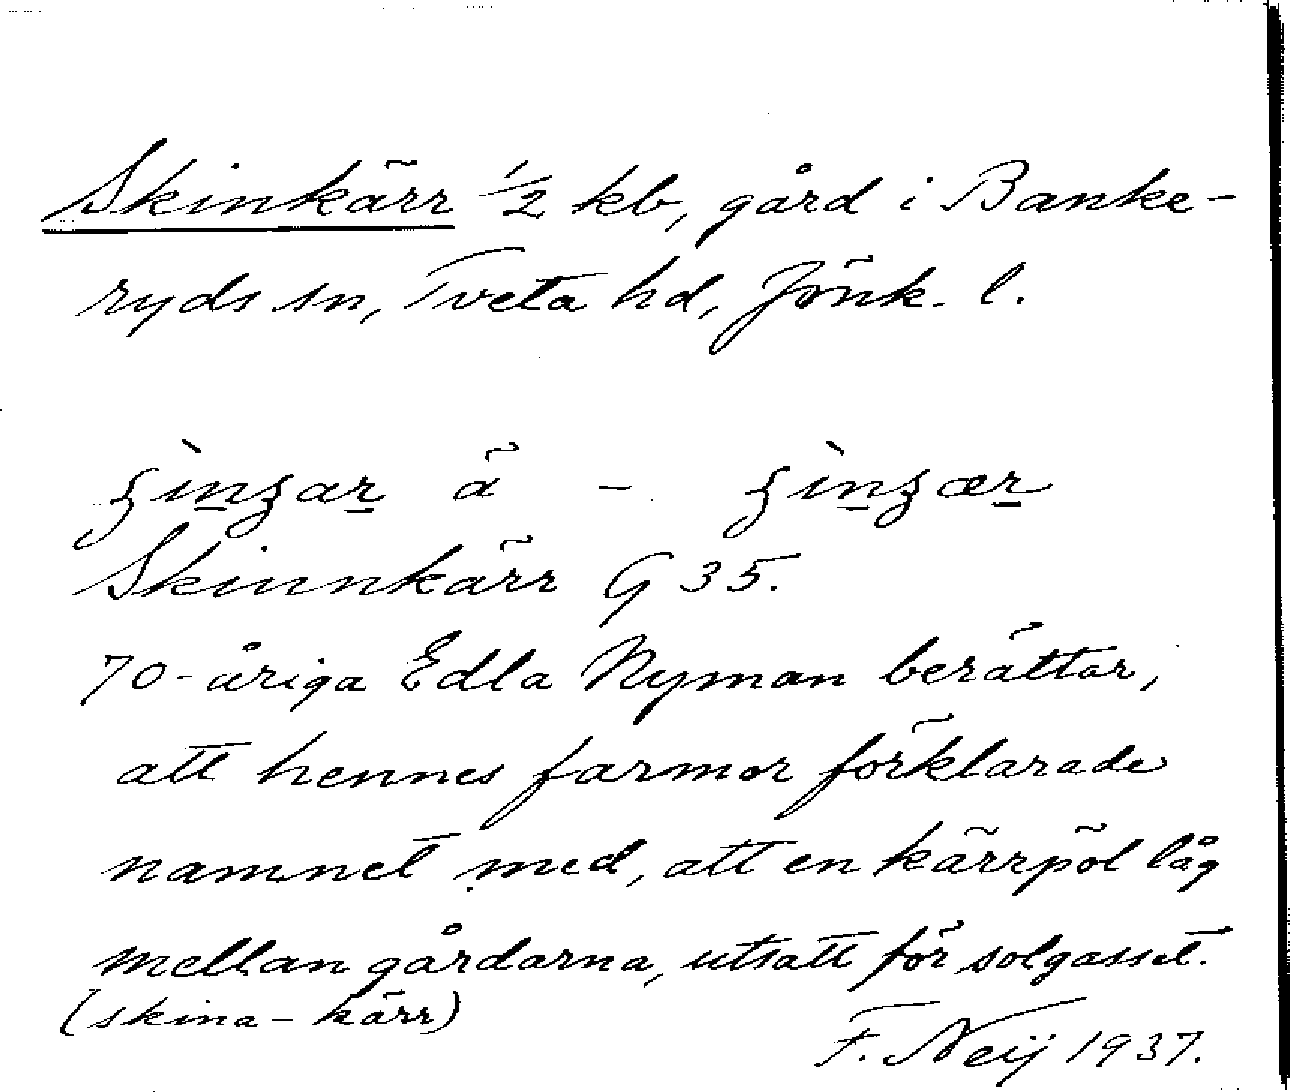 Skinkärr 1/2 kb, gård i Banke-
ryds sn, Tveta hd, Jönk. l.
ä -
Skinnkärr G 35.
70-åriga Edla Nyman berättar,
att hennes farmor förklarade
namnet med, att en kärrpöl låg
mellan gårdarna, utsatt för solgasset.
(skina - kärr)
F. Neij 1937.